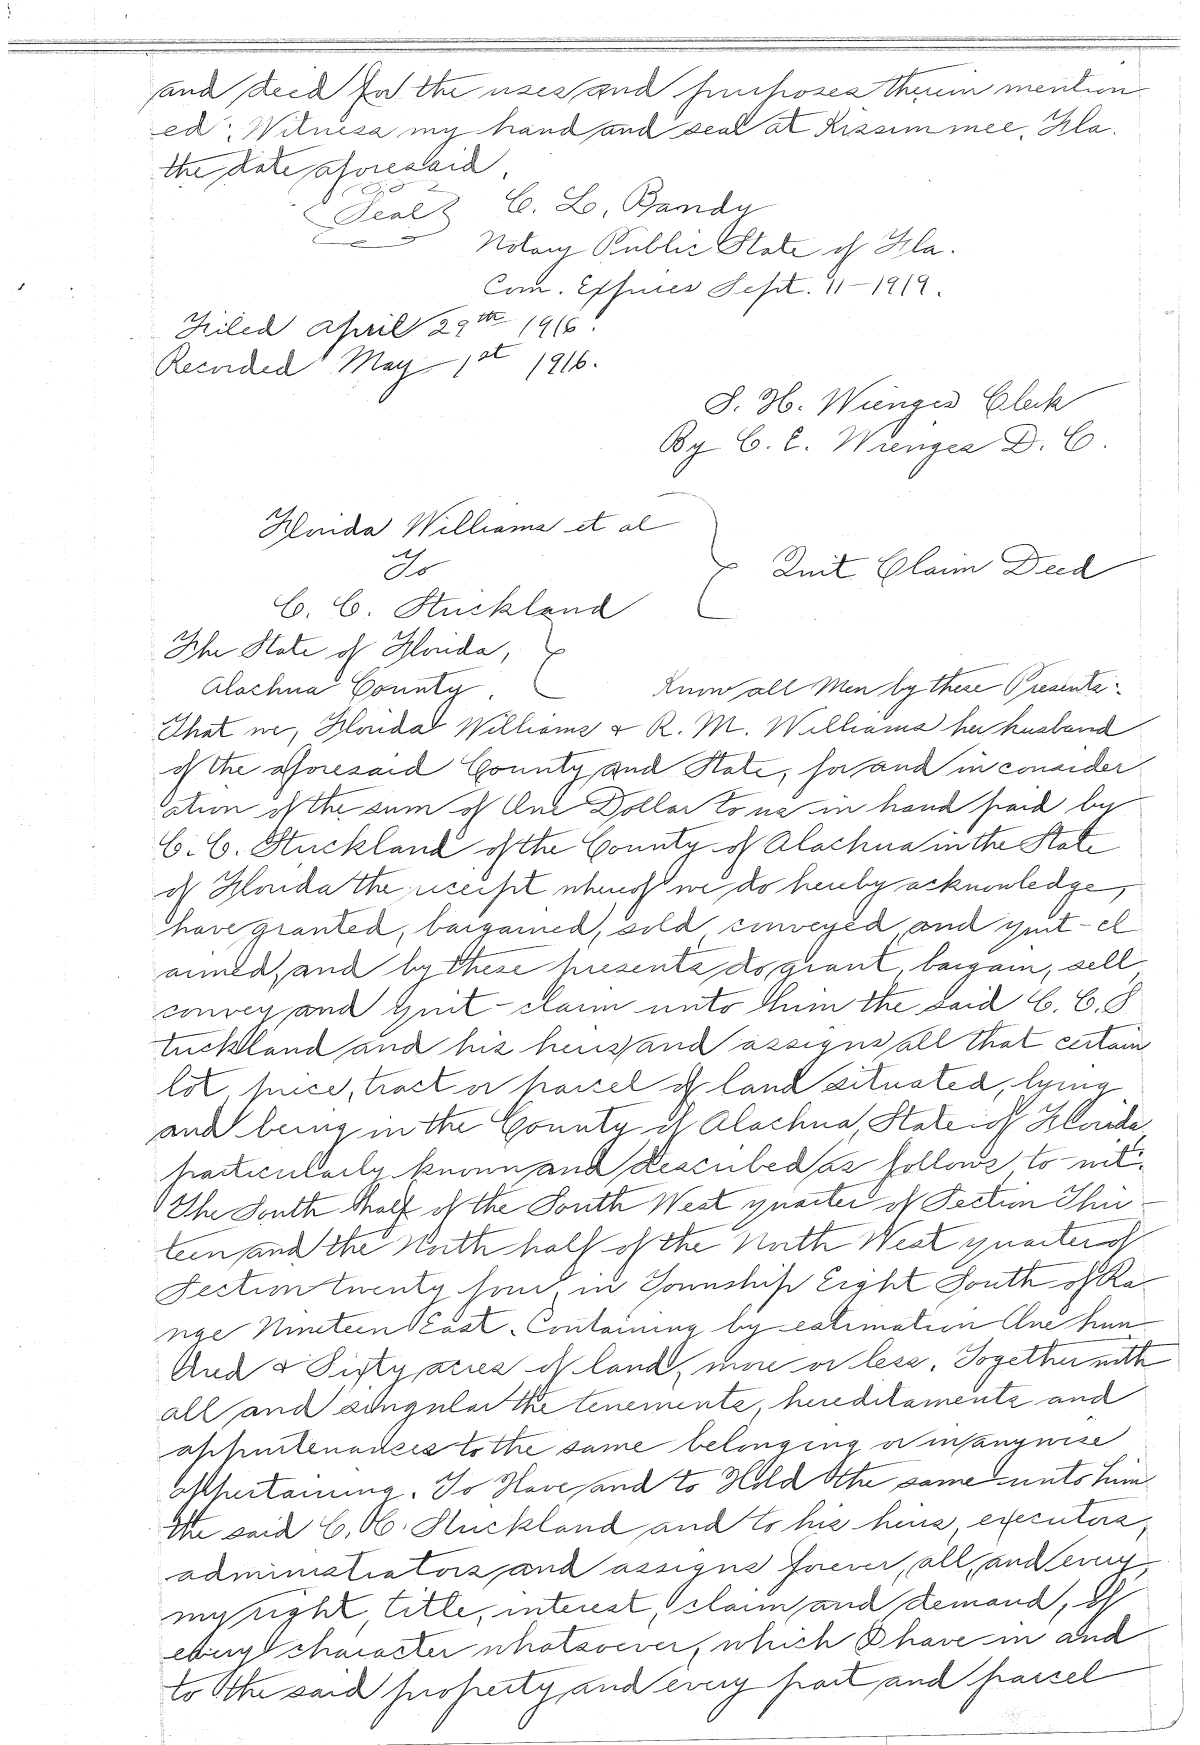 and deed for the uses and purposes therein mention
ed. Witness my hand and seal at Kissimmee, Fla.
the date aforesaid.
Seal C. L. Bandy
Notary Public State of Fla.
Com. Expires Sept. 11-1919.
Filed April 29th 1916.
Recorded May 1st 1916.
S. H. Wienges Clerk
By C. E. Wienges D. C.
Florida Williams et al
To
Quit Claim Deed
C. C. Stuckland
The State of Florida,
Alachua County. Know all Men by these Presents:
That we, Florida Williams & R. M. Williams her husband
of the aforesaid County and State, for and in consider
ation of the sum of One Dollar to us in hand paid by
C. C. Stuckland of the County of Alachua in the State
of Florida the receipt whereof we do hereby acknowledge,
have granted, bargained, sold, conveyed, and quit-cl
aimed, and by these presents do grant, bargain, sell,
convey and quit-claim unto him the said C. C. S
tuckland and his heirs and assigns all that certain
lot, piece, tract or parcel of land situated, lying
and being in the County of Alachua, State of Florida,
particularly known and described as follows, to wit:
The South half of the South West quarter of Section Thir
teen and the North half of the North West quarter of
Section twenty four, in Township Eight South of Ra
nge Nineteen East. Containing by estimation One hun
dred & Sixty acres of land, more or less. Together with
all and singular the tenements, hereditaments and
appurtenances to the same belonging or in anywise
appertaining. To Have and to Hold the same unto him
the said C. C. Stuckland and to his heirs, executors,
administrators and assigns forever, all, and every,
my right, title, interest, claim and demand, of
every character whatsoever, which I have in and
to the said property and every part and parcel